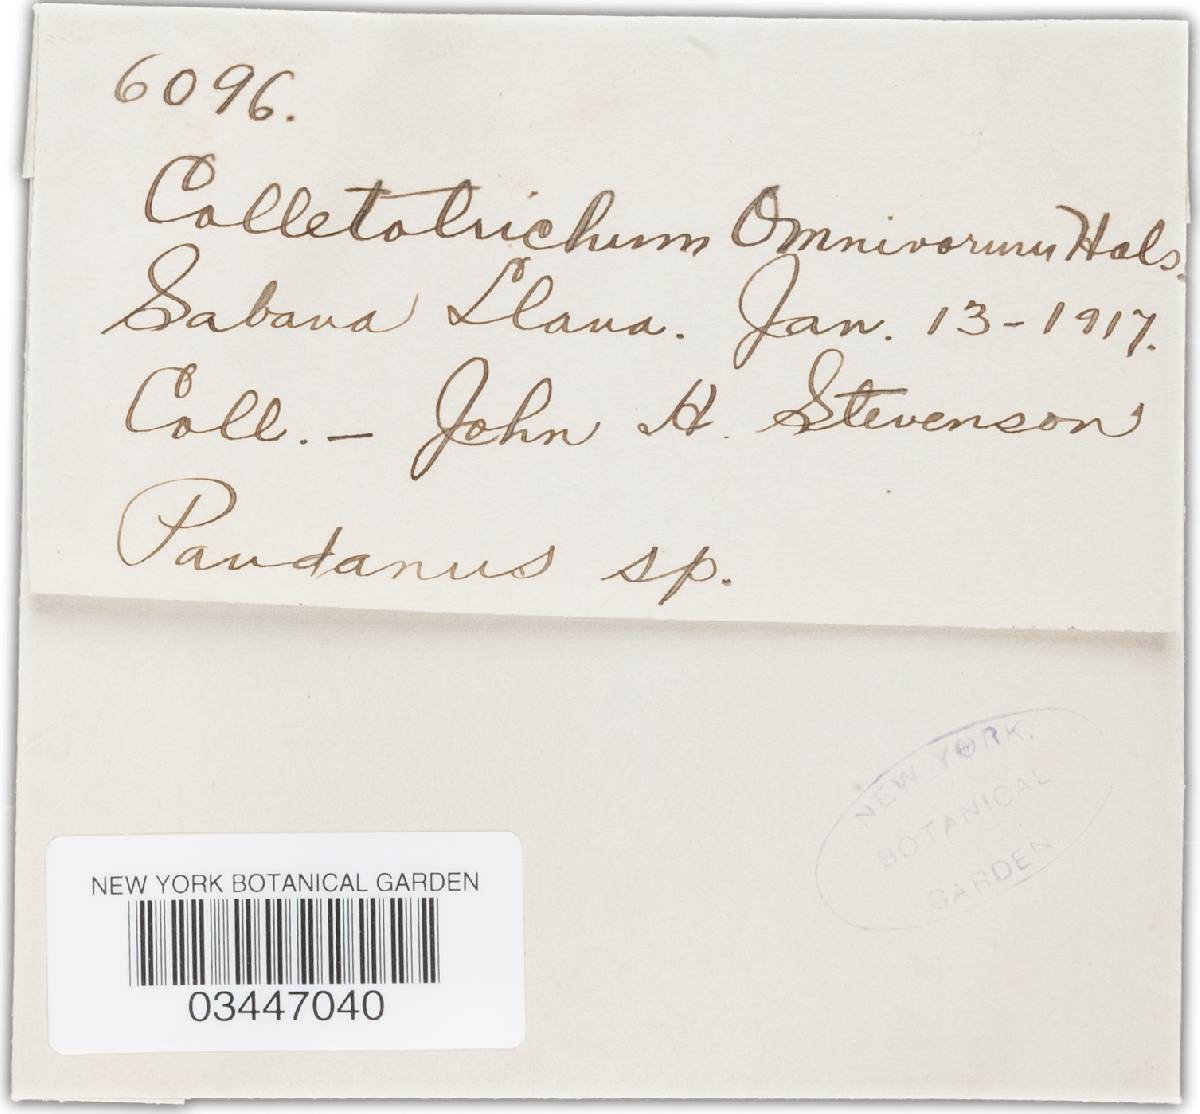 6096.
Colletotrichum Omnivorum Hals.
Sabana Llana. Jan. 13-1917.
Coll. — John H. Stevenson
Pandanus sp.
NEW YORK
BOTANICAL
GARDEN
NEW YORK BOTANICAL GARDEN
03447040